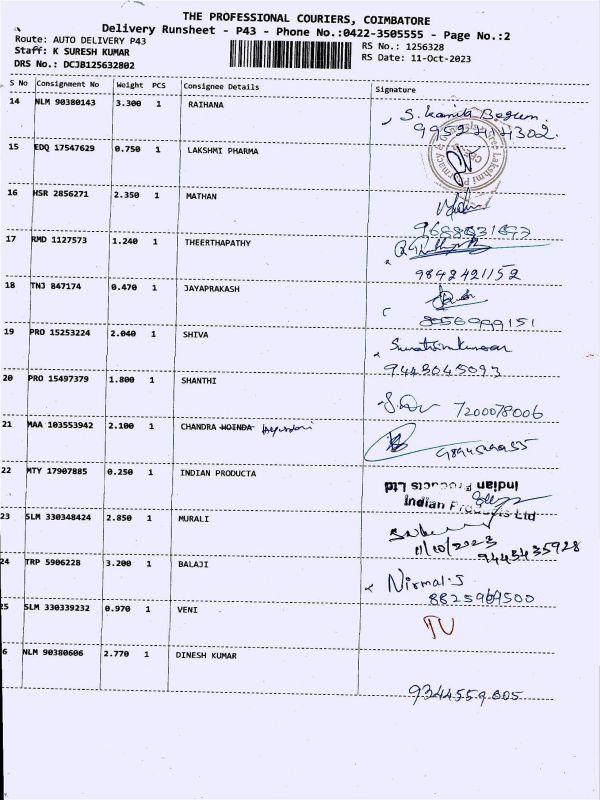 THE PROFESSIONAL COURIERS, COIMBATORE
Delivery Runsheet - P43 - Phone No.:0422-3505555 - Page No.:2
Route: AUTO DELIVERY P43
RS No.: 1256328
Staff: K SURESH KUMAR
RS Date: 11-Oct-2023
DRS No.: DCJB125632802
S No Consignment No Weight PCS Consignee Details Signature
14 NLM 90380143 3.300 1 RAIHANA
15 EDQ 17547629 0.750 1 LAKSHMI PHARMA
16 HSR 2856271 2.350 1 MATHAN
17 RMD 1127573 1.240 1 THEERTHAPATHY
9842421152
18 TNJ 847174 0.470 1 JAYAPRAKASH
8056999151
19 PRO 15253224 2.040 1 SHIVA
9448045093
20 PRO 15497379 1.800 1 SHANTHI
7200078006
21 MAA 103553942 2.100 1 CHANDRA HOINDA
22 MTY 17907885 0.250 1 INDIAN PRODUCTA
Indian Products Ltd
Indian Products Ltd
23 SLM 330348424 2.850 1 MURALI
11/10/2023
9443435928
24 TRP 5906228 3.200 1 BALAJI
Nirmal.S
8825969500
25 SLM 330339232 0.970 1 VENI
6 NLM 90380606 2.770 1 DINESH KUMAR
9344559805